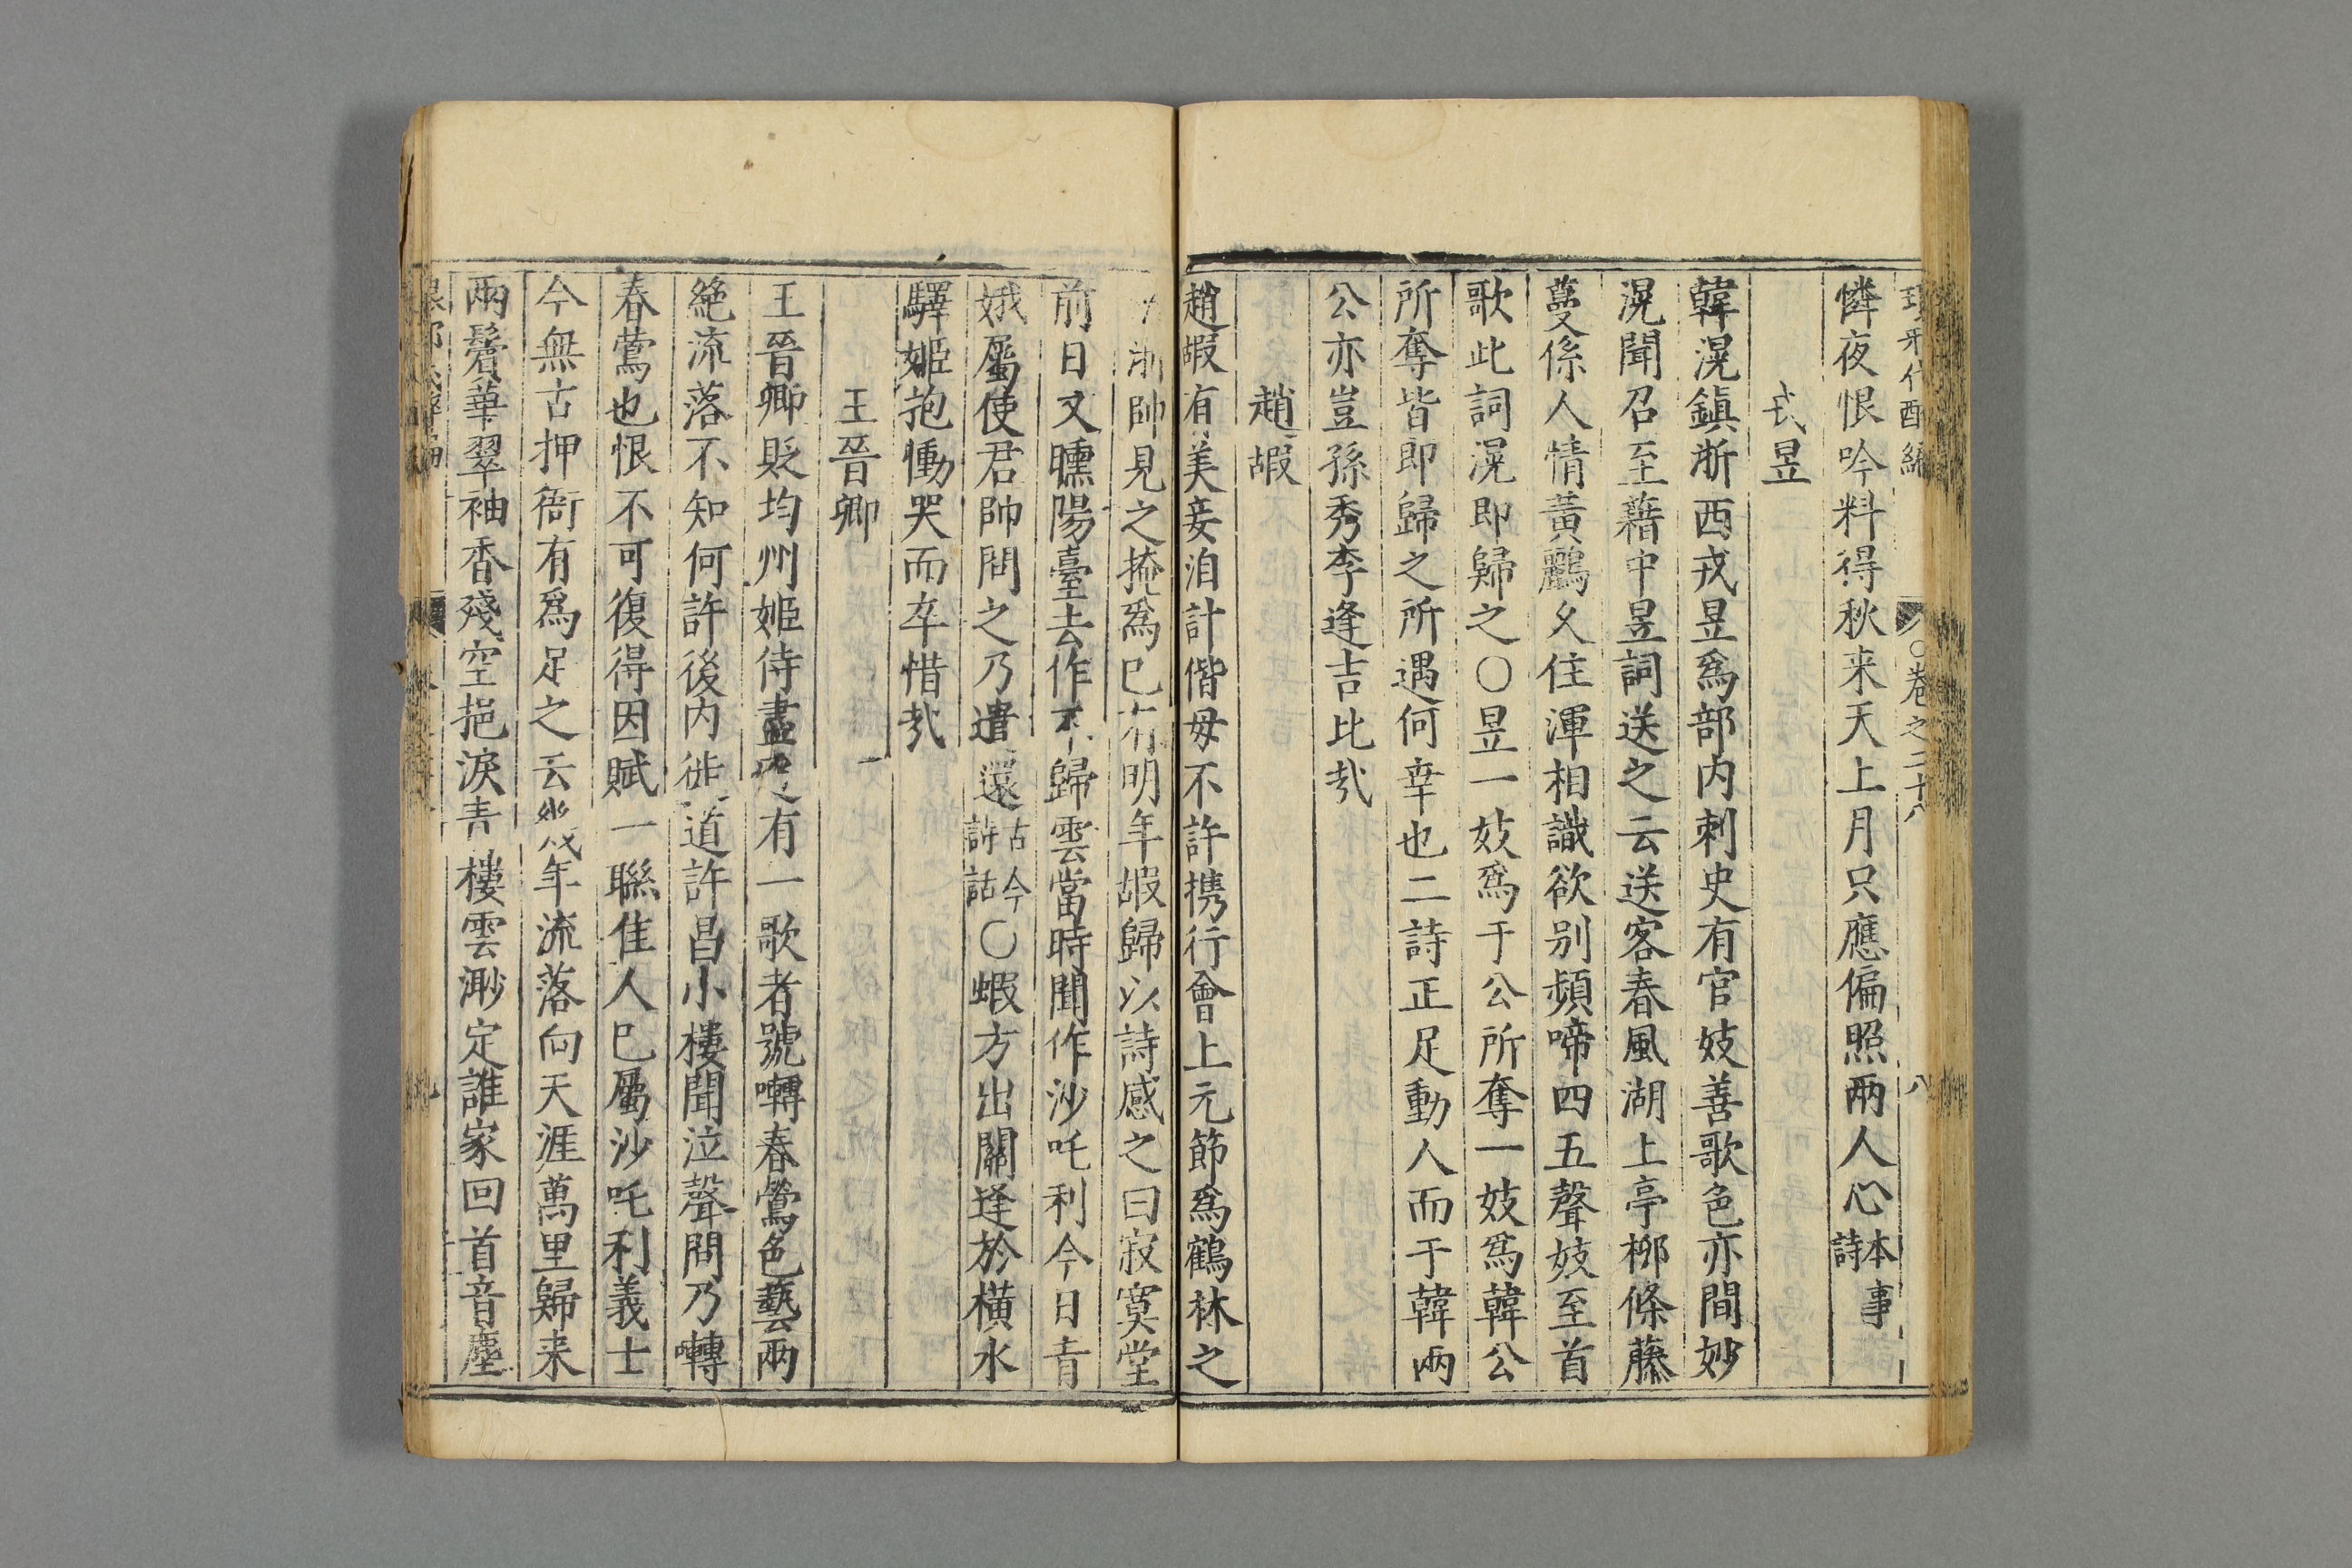 代醉編 ○卷之二十八 八
憐夜恨吟料得秋来天上月只應偏照兩人心本事詩
戎昱
韓滉鎮浙西戎昱爲部内刺史有官妓善歌色亦間妙
滉聞召至藉中昱詞送之云送客春風湖上亭栁條藤
蔓係人情黃鸝乆住渾相識欲别頻啼四五聲妓至首
歌此詞滉即歸之○昱一妓爲于公所奪一妓爲韓公
所奪皆即歸之所遇何幸也二詩正足動人而于韓兩
公亦豈孫秀李逢吉比㢤
趙嘏
趙嘏有美妾洎計偕母不許携行會上元節爲鶴林之
浙帥見之掩爲巳有明年嘏歸以詩感之曰寂寞堂
前日又曛陽臺去作不歸雲當時聞作沙吒利今日青
娥屬使君帥問之乃遣還古今詩話○蝦方出關逢於橫水
驛姬抱慟哭而卒惜㢤
王晉卿
王晉卿貶均州姬侍盡逐有一歌者號囀春鶯色藝兩
絶流落不知何許後内徙道許昌小樓聞泣聲問乃囀
春鶯也恨不可復得因賦一聯佳人巳屬沙吒利義士
今無古押衙有爲足之云幾年流落向天涯萬里歸来
兩鬢華翠袖香殘空挹淚青樓雲渺定誰家回首音塵